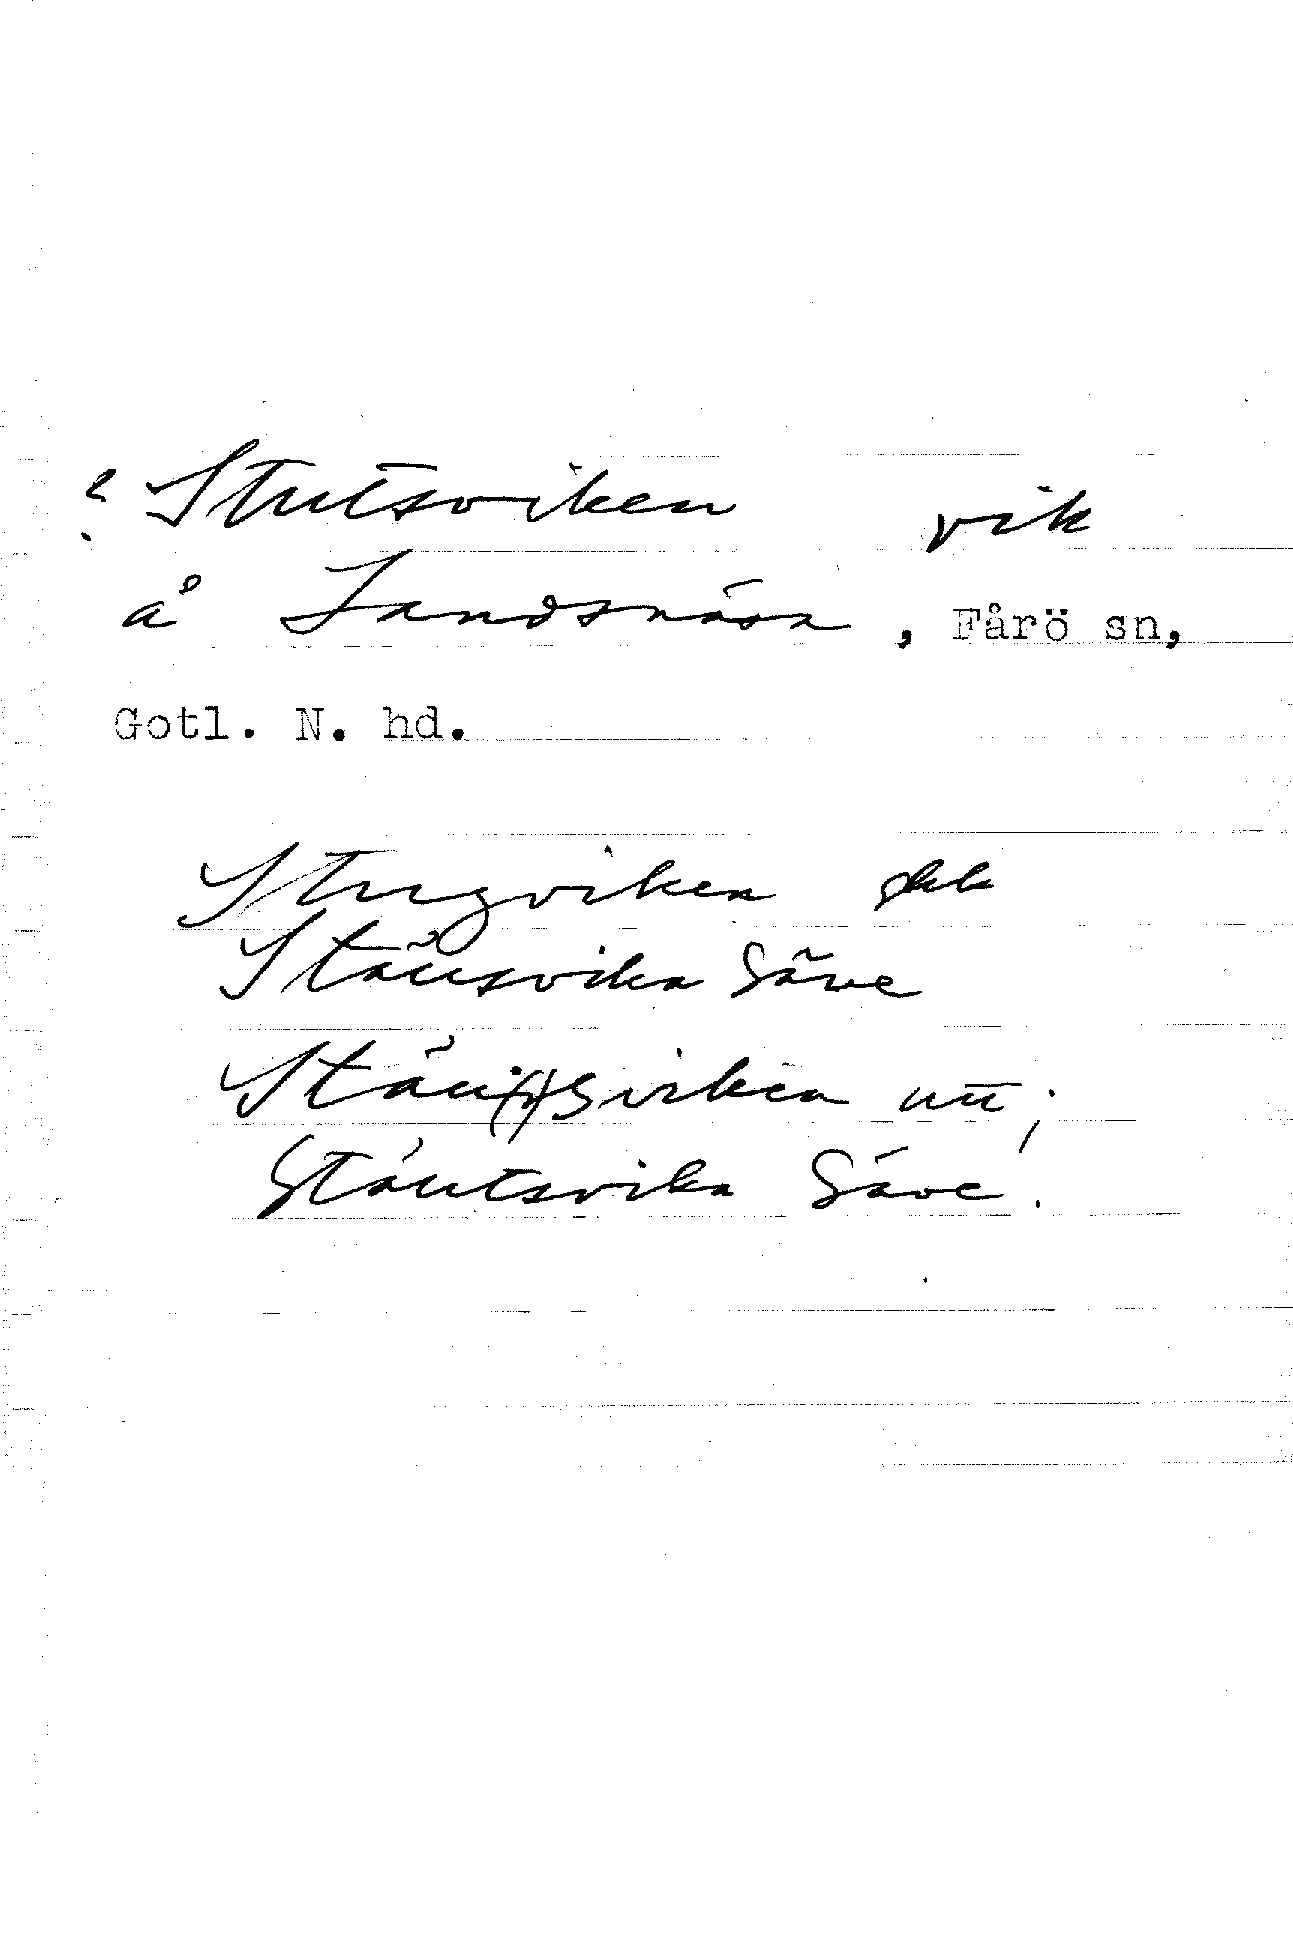 ? Stutsviken vik
å Landsnäsa, Fårö sn,
Gotl. N. hd.
Stugviken ekk
Stäusvika Säve
Stäu(t)sviken utt;
Stäutsvika Säve.